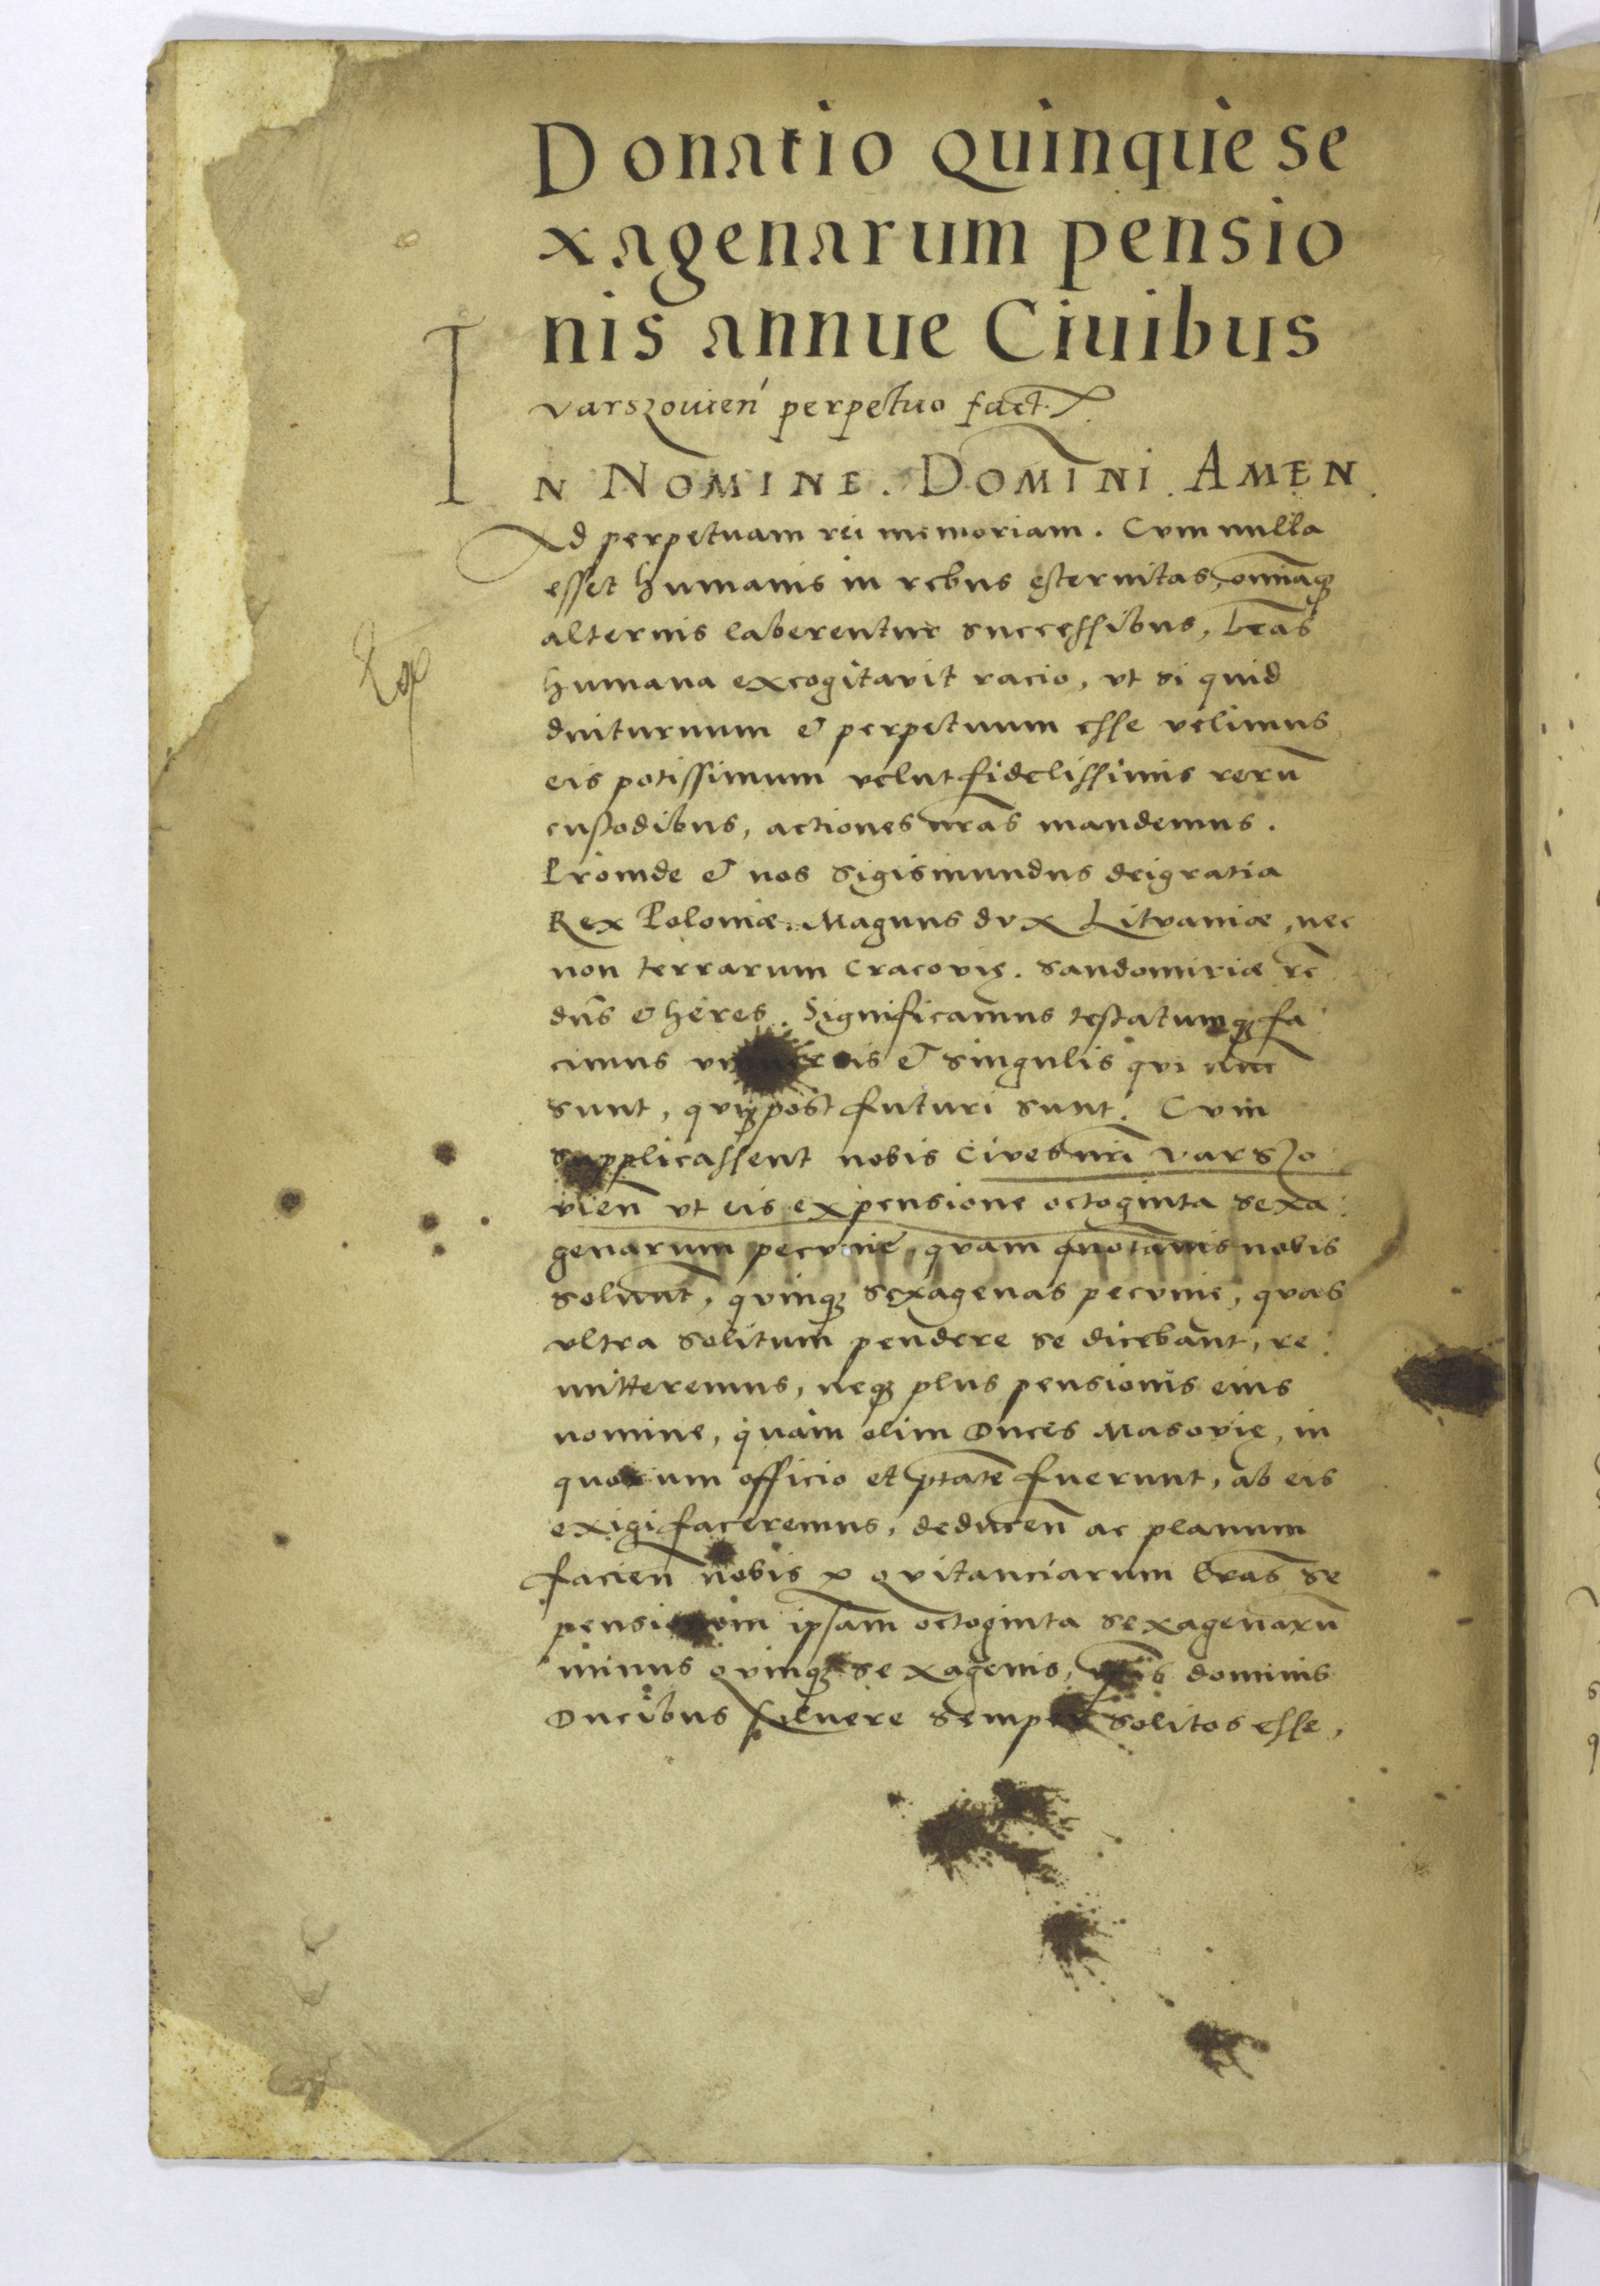 Donatio quinque se
xagenarum pensio
nis annue Ciuibus
varszouien̄ perpetuo fact.
IN NOMINE. DOMINI. AMEN.
Ad perpetuam rei memoriam. Cvm nulla
esset humanis in rebus ęternitas, omniaq̃
alternis laberentur successibus, l̃ras
humana excogitavit racio, vt si quid
diuturnum & perpetuum esse velimus,
eis potissimum velut fidelissimis rerū
custodibus, actiones nr̃as mandemus.
Proinde & nos Sigismundus dei gratia
Rex Poloniæ. Magnus dvx Litvaniæ, nec
non terrarum Cracovię. Sandomiriæ &c̄
dñs & heres. Significamus testatumq̃ fa
cimus & singulis qui nūc
sunt, quiq̃ post futuri sunt. Cvm
supplicassent nobis Cives nr̃i varszo
vien̄ vt eis ex pensione octoginta sexa:
genarum pecvnię, qvam quotannis nobis
solvunt, qvinq̃ sexagenas pecvnię, qvas
vltra solitum pendere se dicebant, re:
mitteremus, neq̃ plus pensionis eius
nomine, quam olim Duces Masovię, in
quorum officio et p̄tate fuerunt, ab eis
exigi faceremus, deducen̄ ac planum
facien̄ nobis p qvitanciarum l̃ras se
pensionem ipsam octoginta sexagenarū
minus qvinq̃ sexagenis, dominis
Ducibus solvere semper solitos esse,